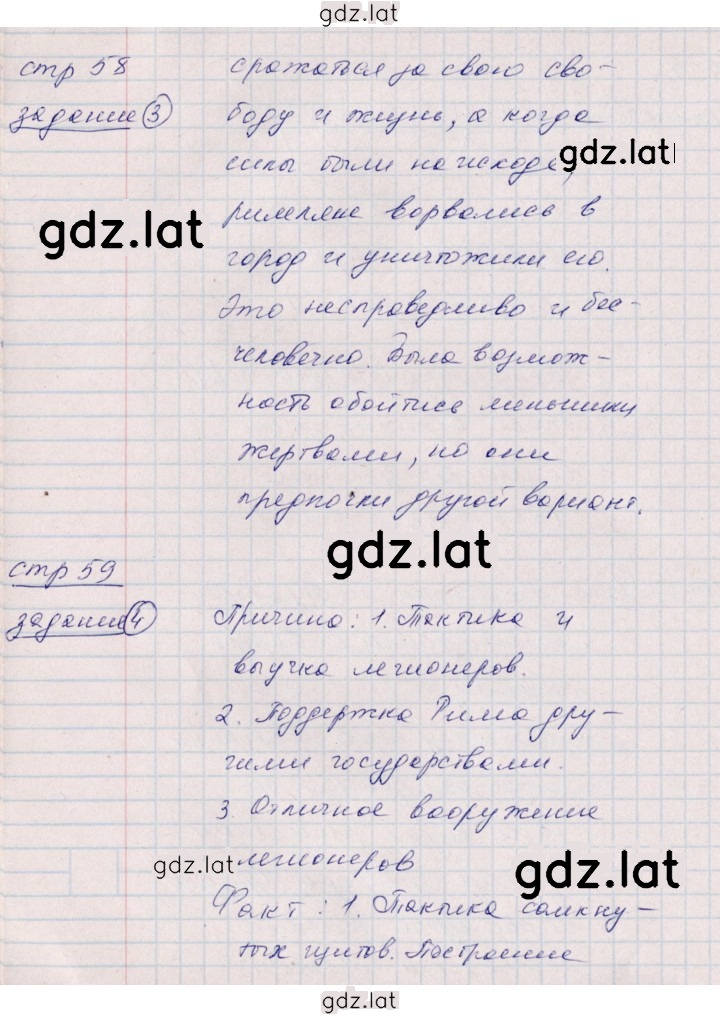 gdz.lat
стр 58 сражаться за свою сво-
задание 3 боду и жизнь, а когда
силы были на исходе, gdz.lat
gdz.lat римляне ворвались в
город и уничтожили его.
Это несправедливо и бес-
человечно. Была возмож-
ность обойтись меньшими
жертвами, но они
предпочли другой вариант.
gdz.lat
стр 59
задание 4 Причина: 1. Тактика и
выучка легионеров.
2. Поддержка Рима дру-
гими государствами.
3. Отличное вооружение
gdz.lat легионеров gdz.lat
Факт: 1. Тактика сомкну-
тых щитов. Построение
gdz.lat